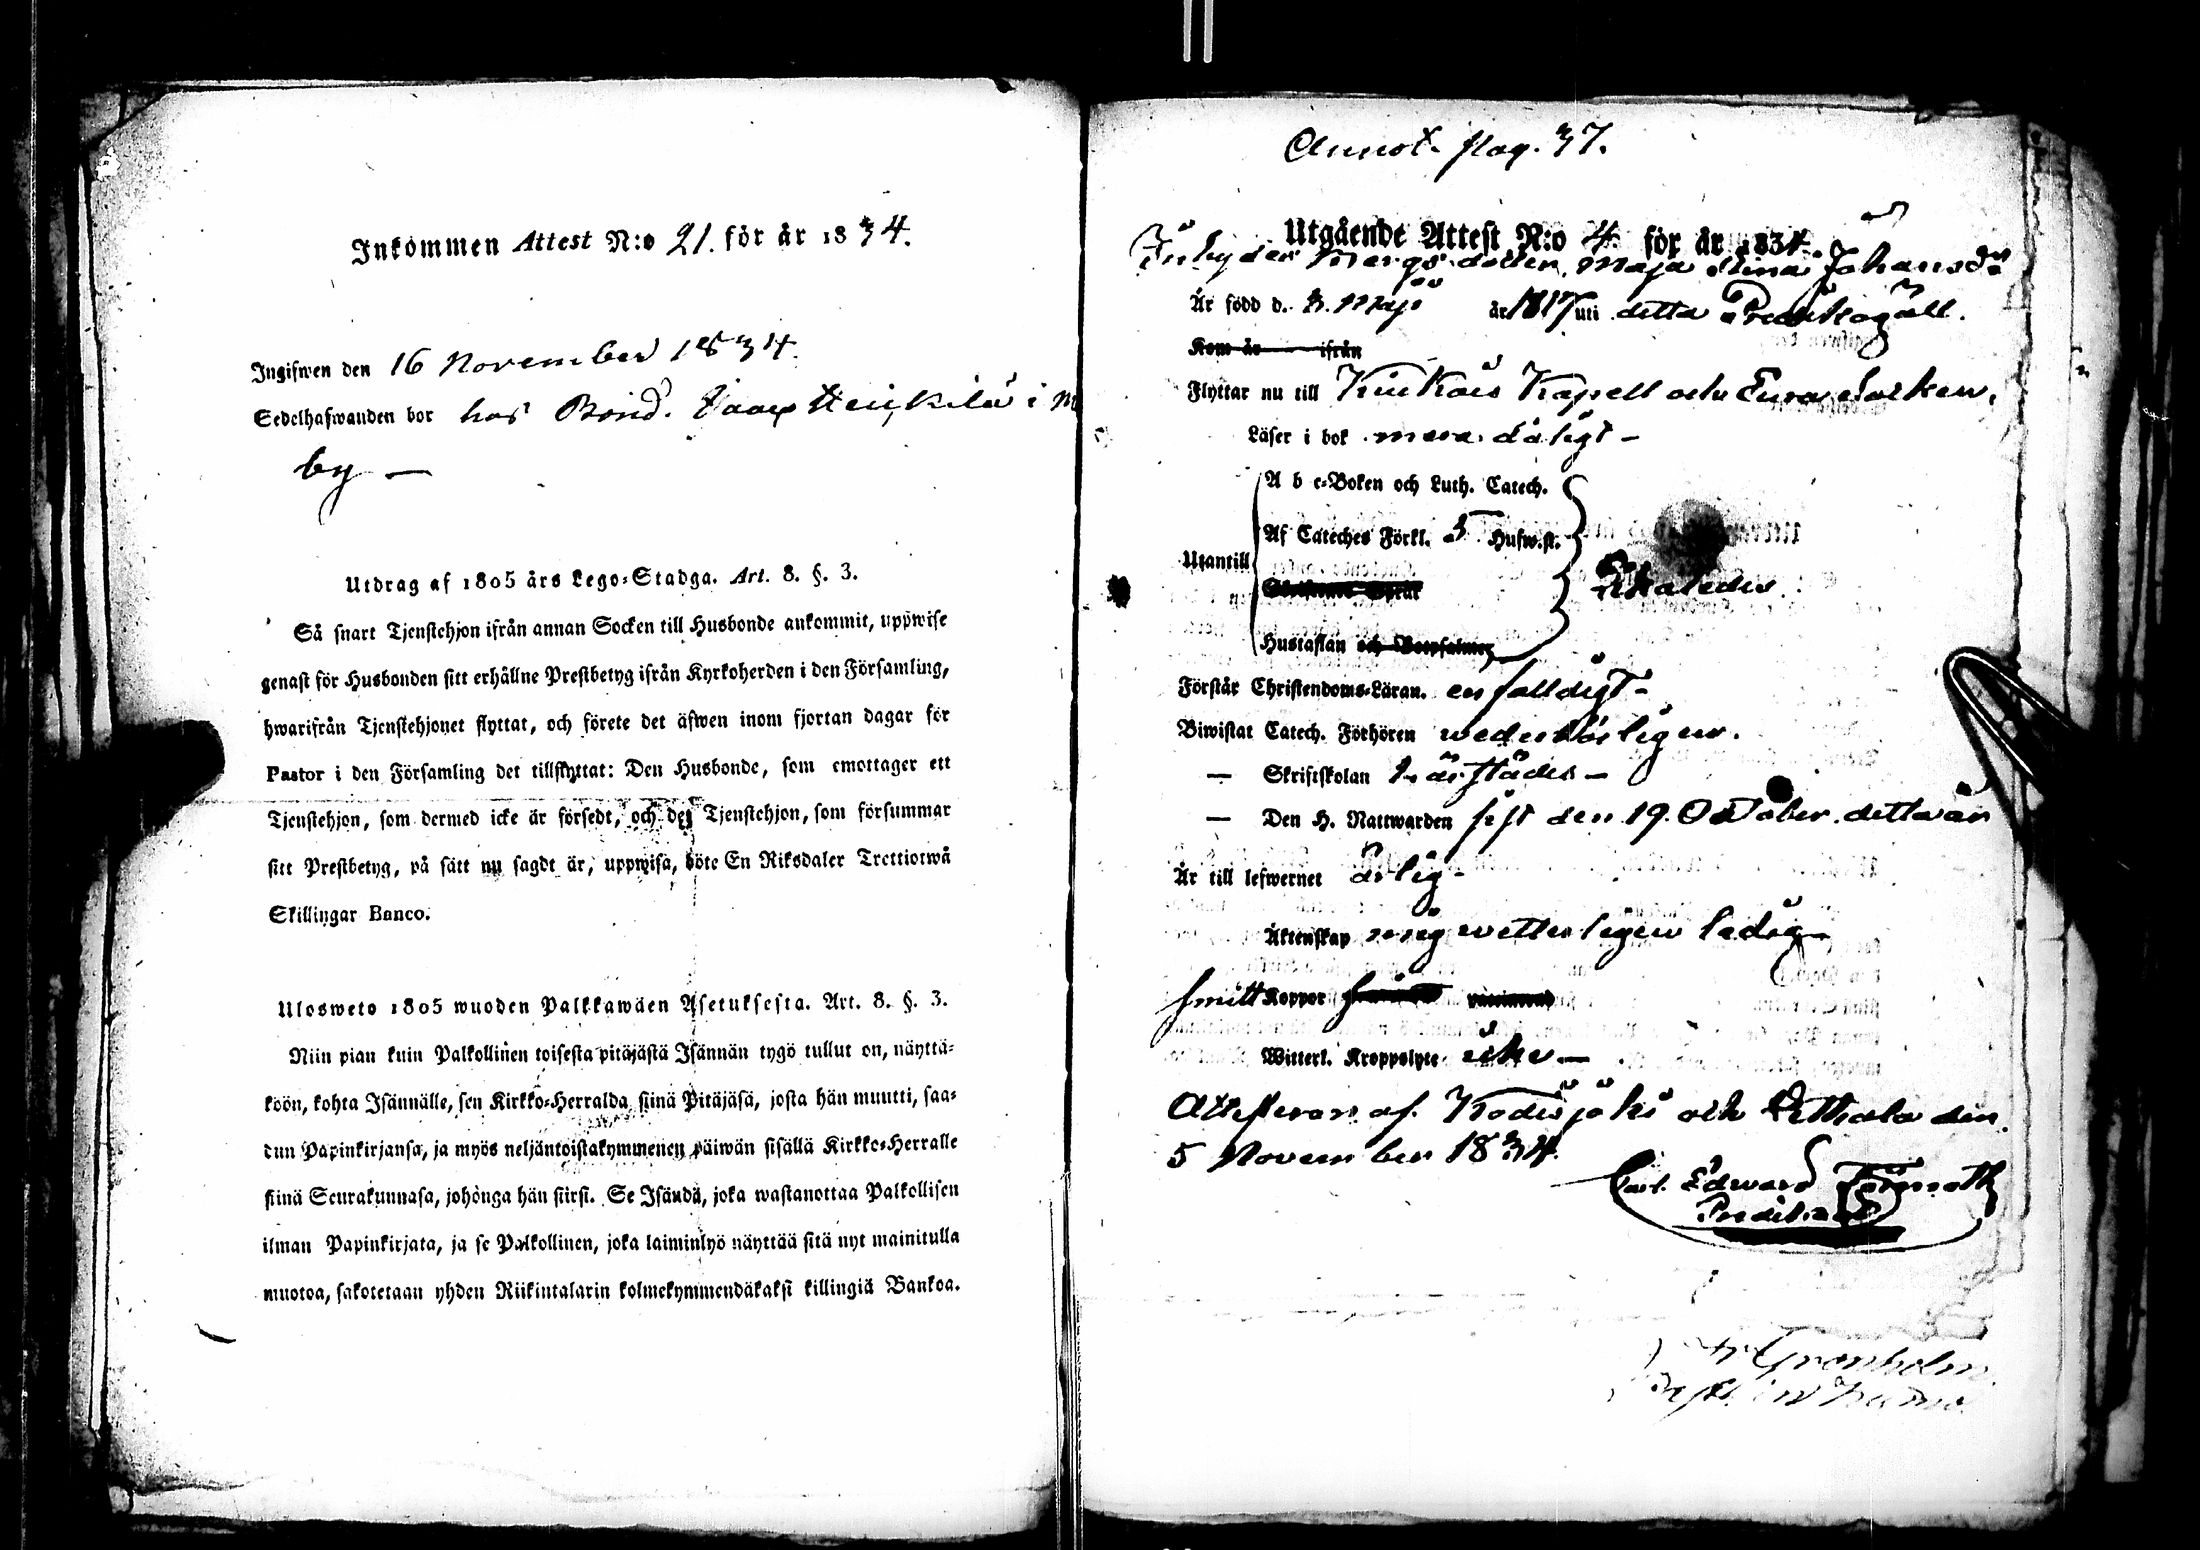 Inkommen Attest N:o 21. för år 1834.
Ingifwen den 16 November 1834.
Sedelhafwanden bor hos Bond. Heikilä i
by —
Utdrag af 1805 års Lego-Stadga. Art. 8. §. 3.
Så snart Tjenstehjon ifrån annan Socken till Husbonde ankommit, uppwise
genast för Husbonden sitt erhållne Prestbetyg ifrån Kyrkoherden i den Församling,
hwarifrån Tjenstehjonet flyttat, och förete det äfwen inom fjortan dagar för
Pastor i den Församling det tillflyttat: Den Husbonde, som emottager ett
Tjenstehjon, som dermed icke är försedt, och det Tjenstehjon, som försummar
sitt Prestbetyg, på sätt nu sagdt är, uppwisa, böte En Riksdaler Trettiotwå
Skillingar Banco.
Ulosweto 1805 wuoden Palkkawäen Asetuksesta. Art. 8. §. 3.
Niin pian kuin Palkollinen toisesta pitäjästä Isännän tygö tullut on, näyttä-
köön, kohta Isännälle, sen Kirkko-Herralda siinä Pitäjäsä, josta hän muutti, saa-
dun Papinkirjansa, ja myös neljäntoistakymmenen päiwän sisällä Kirkko-Herralle
siinä Seurakunnasa, johonga hän siirsi. Se Isändä, joka wastanottaa Palkollisen
ilman Papinkirjata, ja se Palkollinen, joka laiminlyö näyttää sitä nyt mainitulla
muotoa, sakotetaan yhden Riikintalarin kolmekymmendäkaksi killingiä Bankoa.
Annot. pag. 37.
Utgående Attest N:o 4. för år 1834.
Inhyses dotter, Maja Stina Johansdr
Är född d. 3. Maji år 1817 uti detta Prediko gäll.
Kom år ifrån
Flyttar nu till Kiukais Kapell och Eura Socken.
Läser i bok mera dåligt –
A b c-Boken och Luth. Catech.
Af Cateches Förkl. 5 Hufw.st.
Utantill
Hustaflan och Botpsalmer
Förstår Christendoms-Läran. enfalldigt –
Biwistat Catech. Förhören wederbörligen.
— Skriftskolan härstädes –
— Den H. Nattwarden sist den 19. October. detta år
Är till lefwernet ärlig –
Äktenskap mig wetterligen ledig –
Koppor
Witterl. Kroppslyte icke —
Attesteras af Kodisjoki och Hithala den
5 November 1834.
Carl Edward
Predikant
Grönholm